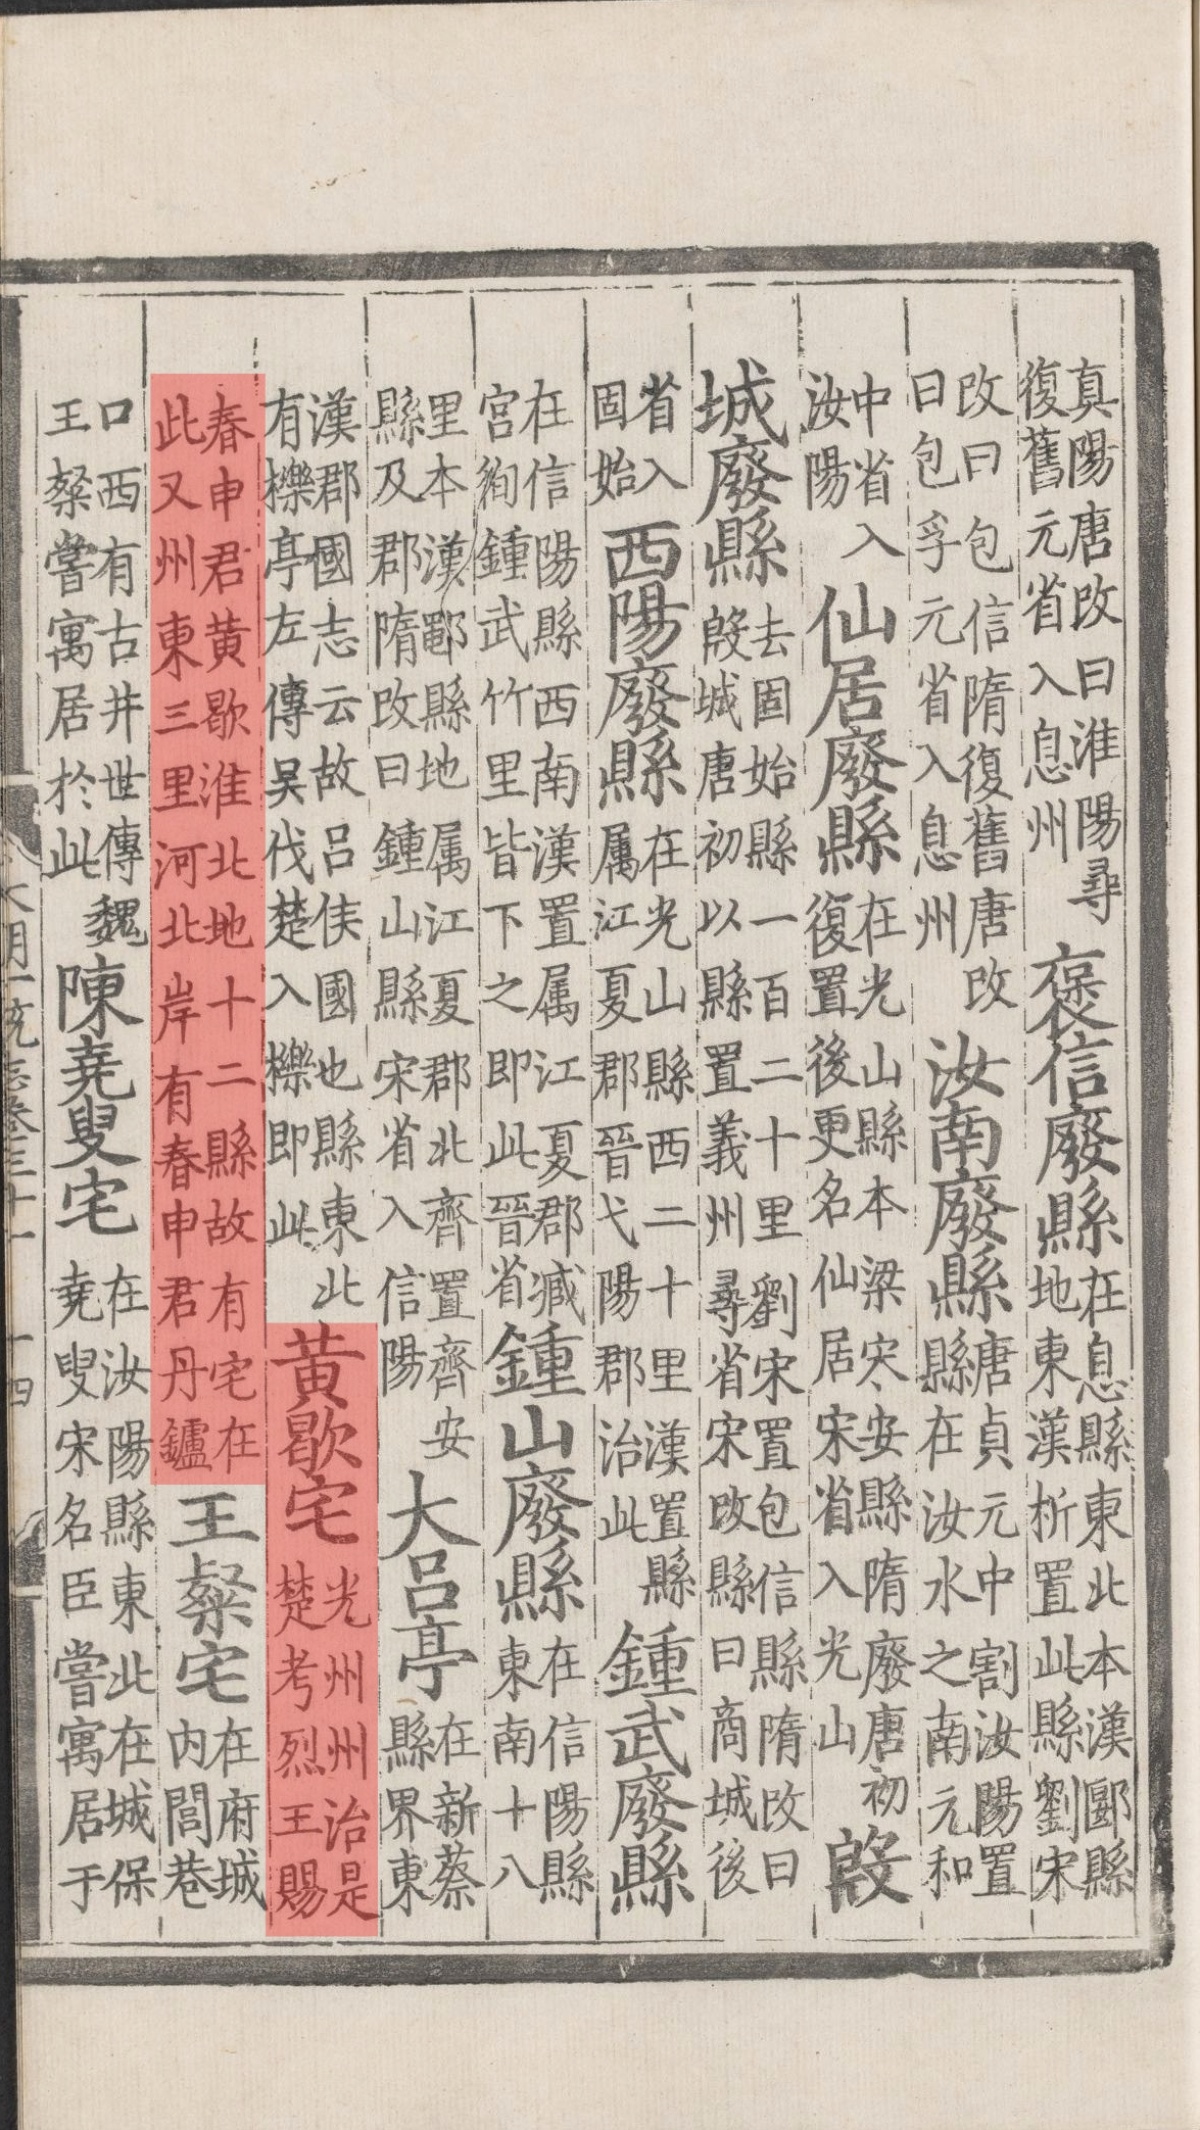 真陽唐改曰淮陽尋復舊元省入息州褒信廢縣在息縣東北本漢郾縣地東漢析置此縣劉宋
改曰包信隋復舊唐改曰包孚元省入息州汝南廢縣唐貞元中割汝陽置縣在汝水之南元和
中省入汝陽仙居廢縣在光山縣本梁宋安縣隋廢唐初復置後更名仙居宋省入光山殷
城廢縣去固始縣一百二十里劉宋置包信縣隋改曰殷城唐初以縣置義州尋省宋改縣曰商城後
省入固始西陽廢縣在光山縣西二十里漢置縣属江夏郡晉弋陽郡治此鍾武廢縣
在信陽縣西南漢置属江夏郡臧宮徇鍾武竹里皆下之即此晉省鍾山廢縣在信陽縣東南十八
里本漢鄳縣地属江夏郡北齊置齊安縣及郡隋改曰鍾山縣宋省入信陽大呂亭在新蔡縣界東
漢郡國志云故呂侯國也縣東北有櫟亭左傳吳伐楚入櫟即此黃歇宅光州州治是楚考烈王賜
春申君黃歇淮北地十二縣故有宅在此又州東三里河北岸有春申君丹鑪王粲宅在府城内閭巷
口西有古井世傳魏王粲嘗寓居於此陳堯叟宅在汝陽縣東北在城保堯叟宋名臣嘗寓居于
大明一統志卷三十一
十四